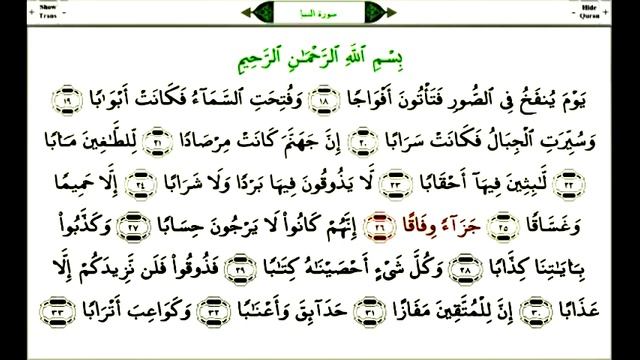 Show Trans
سورة النبا
Hide Quran
بِسْمِ ٱللَّهِ ٱلرَّحْمَـٰنِ ٱلرَّحِيمِ
يَوْمَ يُنفَخُ فِى ٱلصُّورِ فَتَأْتُونَ أَفْوَاجًا ١٨ وَفُتِحَتِ ٱلسَّمَآءُ فَكَانَتْ أَبْوَابًا ١٩
وَسُيِّرَتِ ٱلْجِبَالُ فَكَانَتْ سَرَابًا ٢٠ إِنَّ جَهَنَّمَ كَانَتْ مِرْصَادًا ٢١ لِّلطَّـٰغِينَ مَـَٔابًا
٢٢ لَّـٰبِثِينَ فِيهَآ أَحْقَابًا ٢٣ لَّا يَذُوقُونَ فِيهَا بَرْدًا وَلَا شَرَابًا ٢٤ إِلَّا حَمِيمًا
وَغَسَّاقًا ٢٥ جَزَآءً وِفَاقًا ٢٦ إِنَّهُمْ كَانُوا۟ لَا يَرْجُونَ حِسَابًا ٢٧ وَكَذَّبُوا۟
بِـَٔايَـٰتِنَا كِذَّابًا ٢٨ وَكُلَّ شَىْءٍ أَحْصَيْنَـٰهُ كِتَـٰبًا ٢٩ فَذُوقُوا۟ فَلَن نَّزِيدَكُمْ إِلَّا
عَذَابًا ٣٠ إِنَّ لِلْمُتَّقِينَ مَفَازًا ٣١ حَدَآئِقَ وَأَعْنَـٰبًا ٣٢ وَكَوَاعِبَ أَتْرَابًا ٣٣